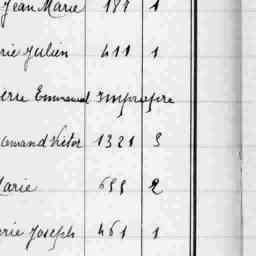 Jean Marie 181 1
rie Julien 411 1
erre Emmanuel Impropre
Armand Victor 1321 3
Marie 655 2
erie Joseph 461 1